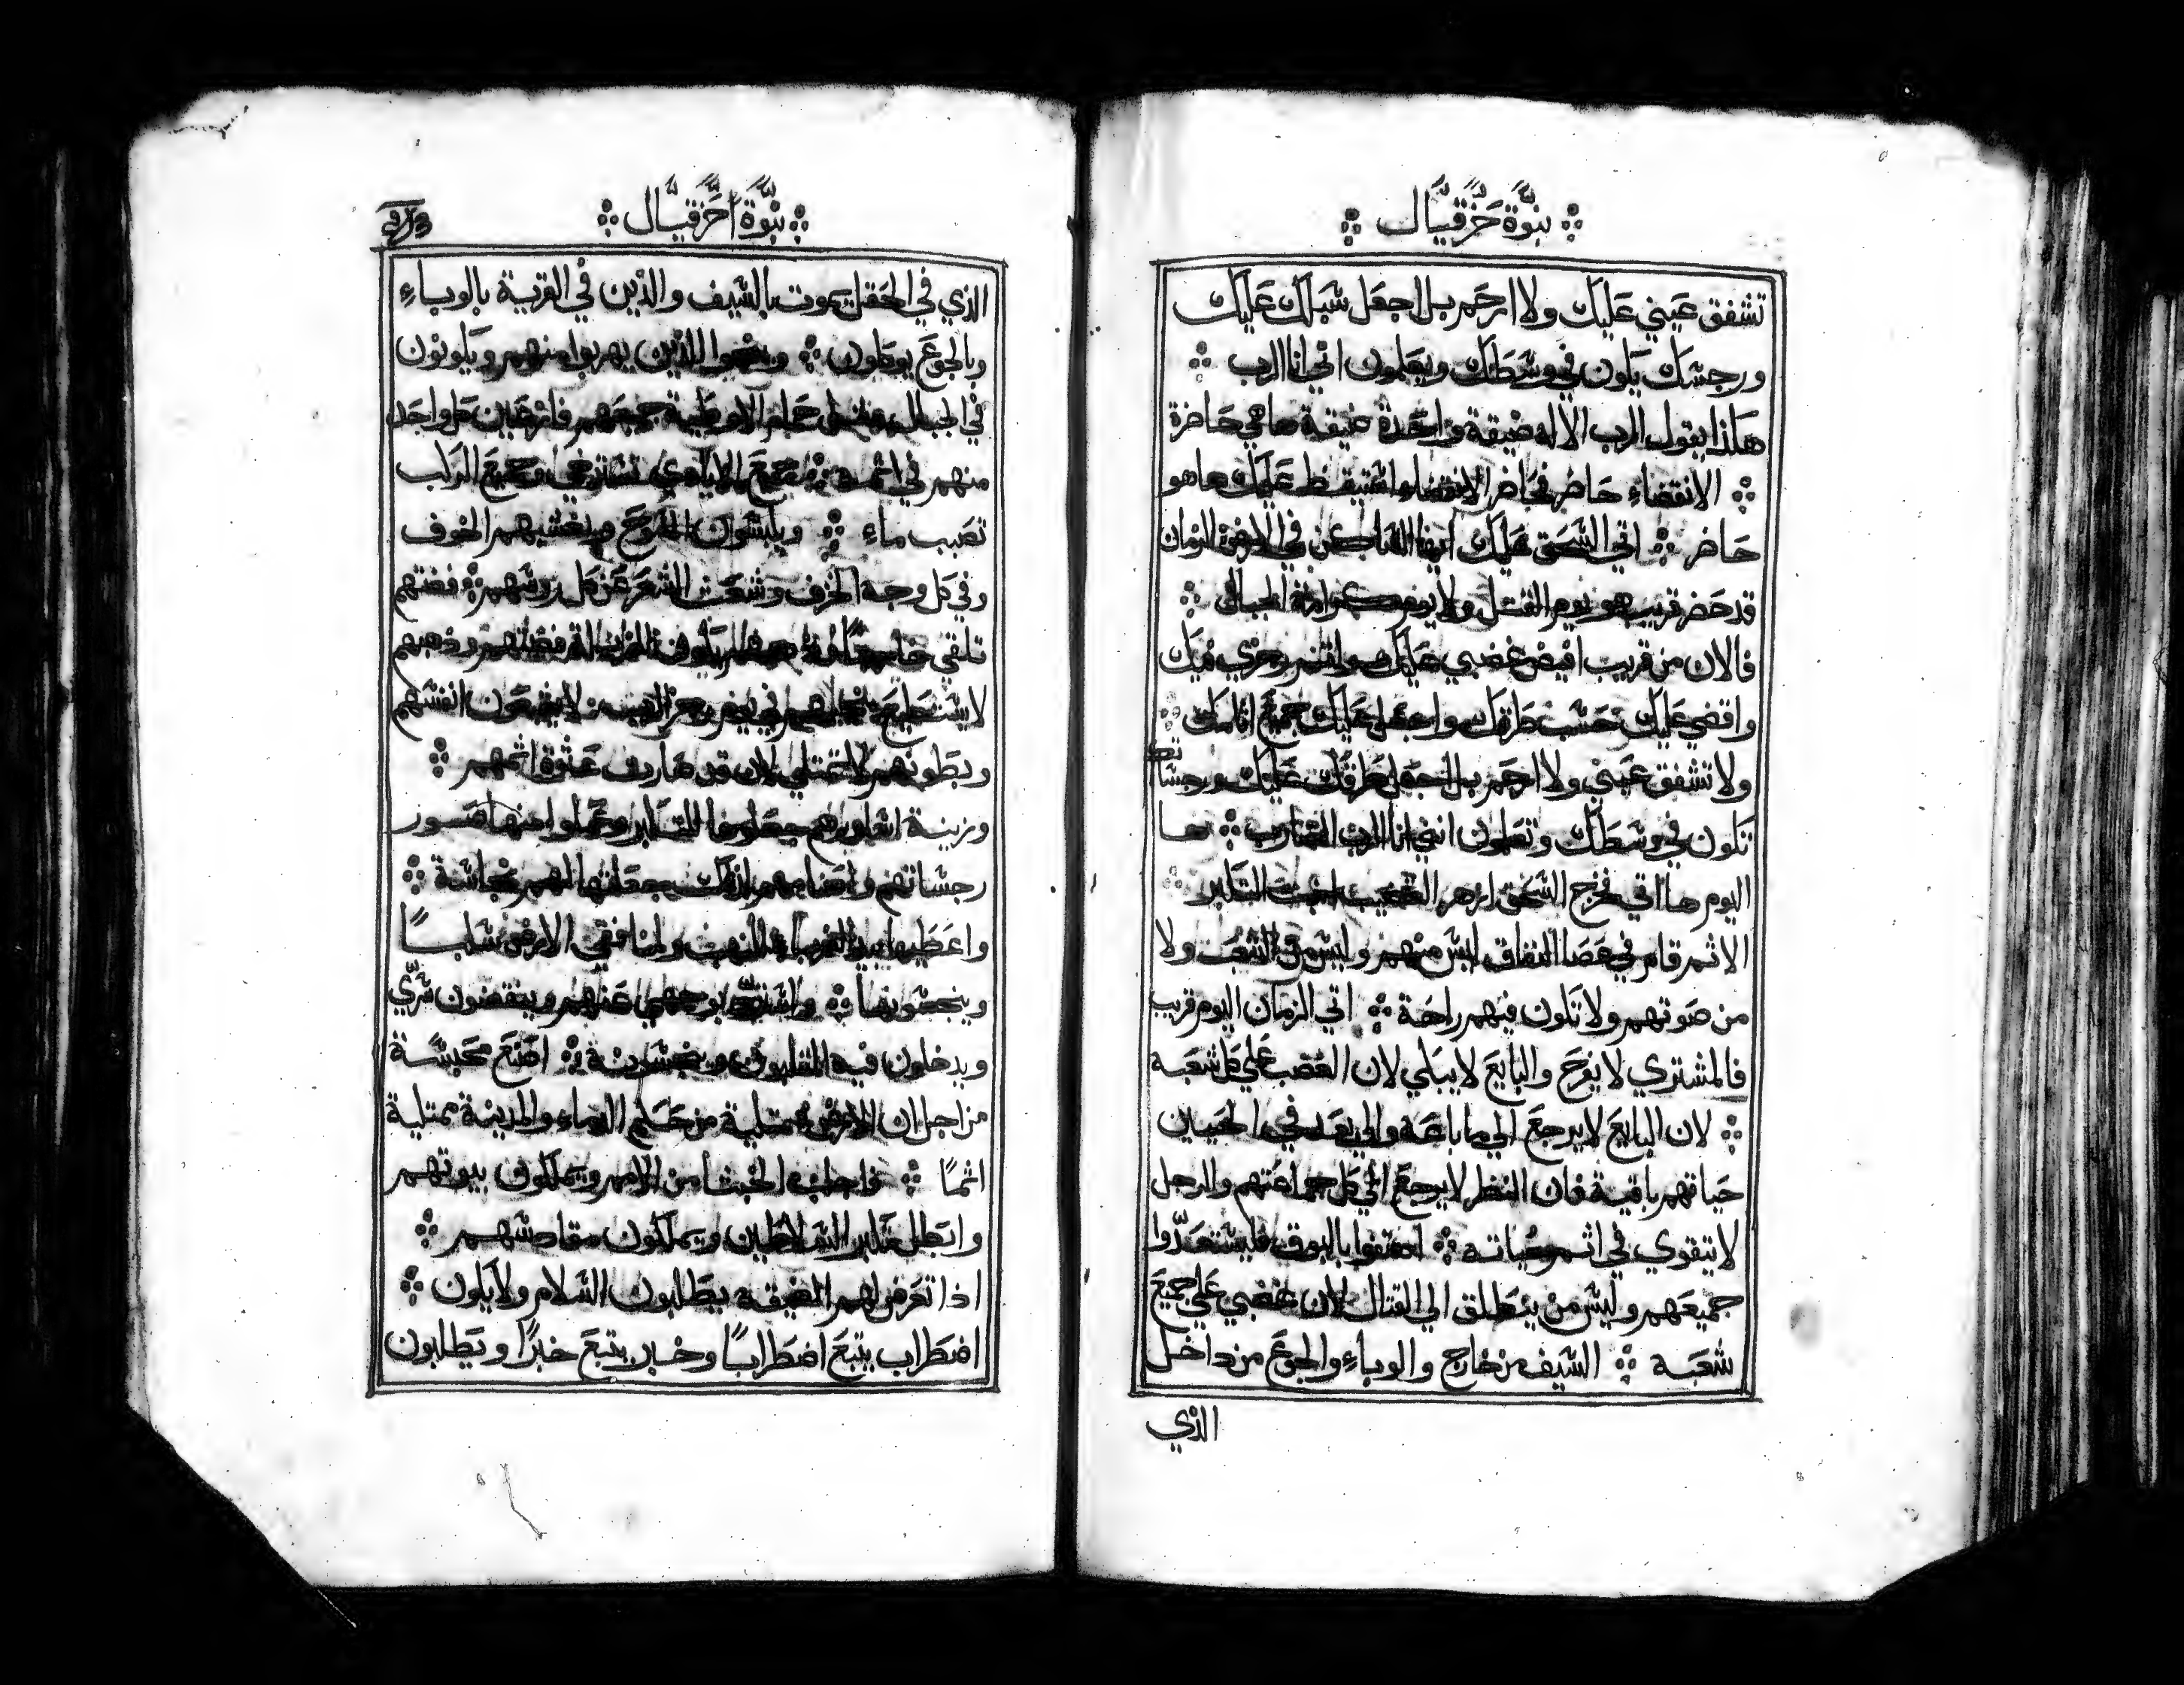 نبوة حزقيال
تشفق عيني عليك ولا ارحم بل اجعل شبلك عليك
ورجسك يكون في وسطك ويعلمون اني انا الرب
هكذا يقول الرب الاله ضيقة واحدة ضيقة ها هي حاضرة
الانقضاء حاضر حاضر الانقضاء استيقظ عليك ها هو
حاضر اتي السحق عليك ايها الساكن في الارض الزمان
قد حضر قريب هو يوم القتل ولا يوم كرامة الجبال
فالان من قريب افيض غضبي عليك واتمم رجزي فيك
واقضي عليك حسب طرقك واجعل عليك جميع اثامك
ولا تشفق عيني ولا ارحم بل اجعل طرقك عليك ورجساتك
تكون في وسطك وتعلمون انني انا الرب الضارب ها
اليوم ها اتي فخرج السحق ازهر القضيب انبت التكبر
الاثم قام في عصا النفاق ليس منهم وليس من الشعب ولا
من صوتهم ولا تكون فيهم راحة اتي الزمان اليوم قريب
فالمشتري لا يفرح والبايع لا يبكي لان الغضب علي كل شعبه
لان البايع لا يرجع الي ما باعه والي بعد في الحيين
حياتهم باقية فان النظر لا يرجع الي كل جماعتهم والرجل
لا يتقوي في اثم حياته اهتفوا بالبوق فليستعدوا
جميعهم وليس من ينطلق الي القتال لان غضبي علي جميع
شعبه السيف من خارج والوباء والجوع من داخل
الذي
نبوة احزقيال
الذي في الحقل يموت بالسيف والذين في القرية بالوباء
وبالجوع يوكلون وينجوا الذين يهربوا منهم ويكونون
في الجبال مثل حمام الاوطية جميعهم فازعين كل واحد
منهم في اثمه جميع الايادي تسترخي وجميع الركب
تصبب ماء ويلبسون المسوح ويغشيهم الخوف
وفي كل وجه الخزي وشعث الشعر عن كل روسهم فضتهم
تلقي خارجا فضتهم وذهبهم
لا يستطيع ينجيهم في يوم رجز الرب لا يشبعون انفسهم
وبطونهم لا تمتلي لان قد صارت عثرة اثمهم
وزينة جعلوها للتكبر وعملوا منها صور
رجساتهم واصنامهم لذلك جعلتها لهم نجاسة
واعطيها بيد الغربا للنهب ولمنافقي الارض سلبا
وينجسونها واصرف وجهي عنهم وينقضون سري
ويدخلون فيه وينجسونه اصنع محبسة
من اجل ان الارض ممتلية من حكم الدماء والمدينة ممتلية
اثما واجلب الخبثا من الامم ويملكون بيوتهم
وابطل تكبر المتسلطين ويملكون مقادسهم
اذا تعرض لهم الضيقه يطلبون السلام ولا يكون
اضطراب يتبع اضطرابا وخبر يتبع خبرا ويطلبون